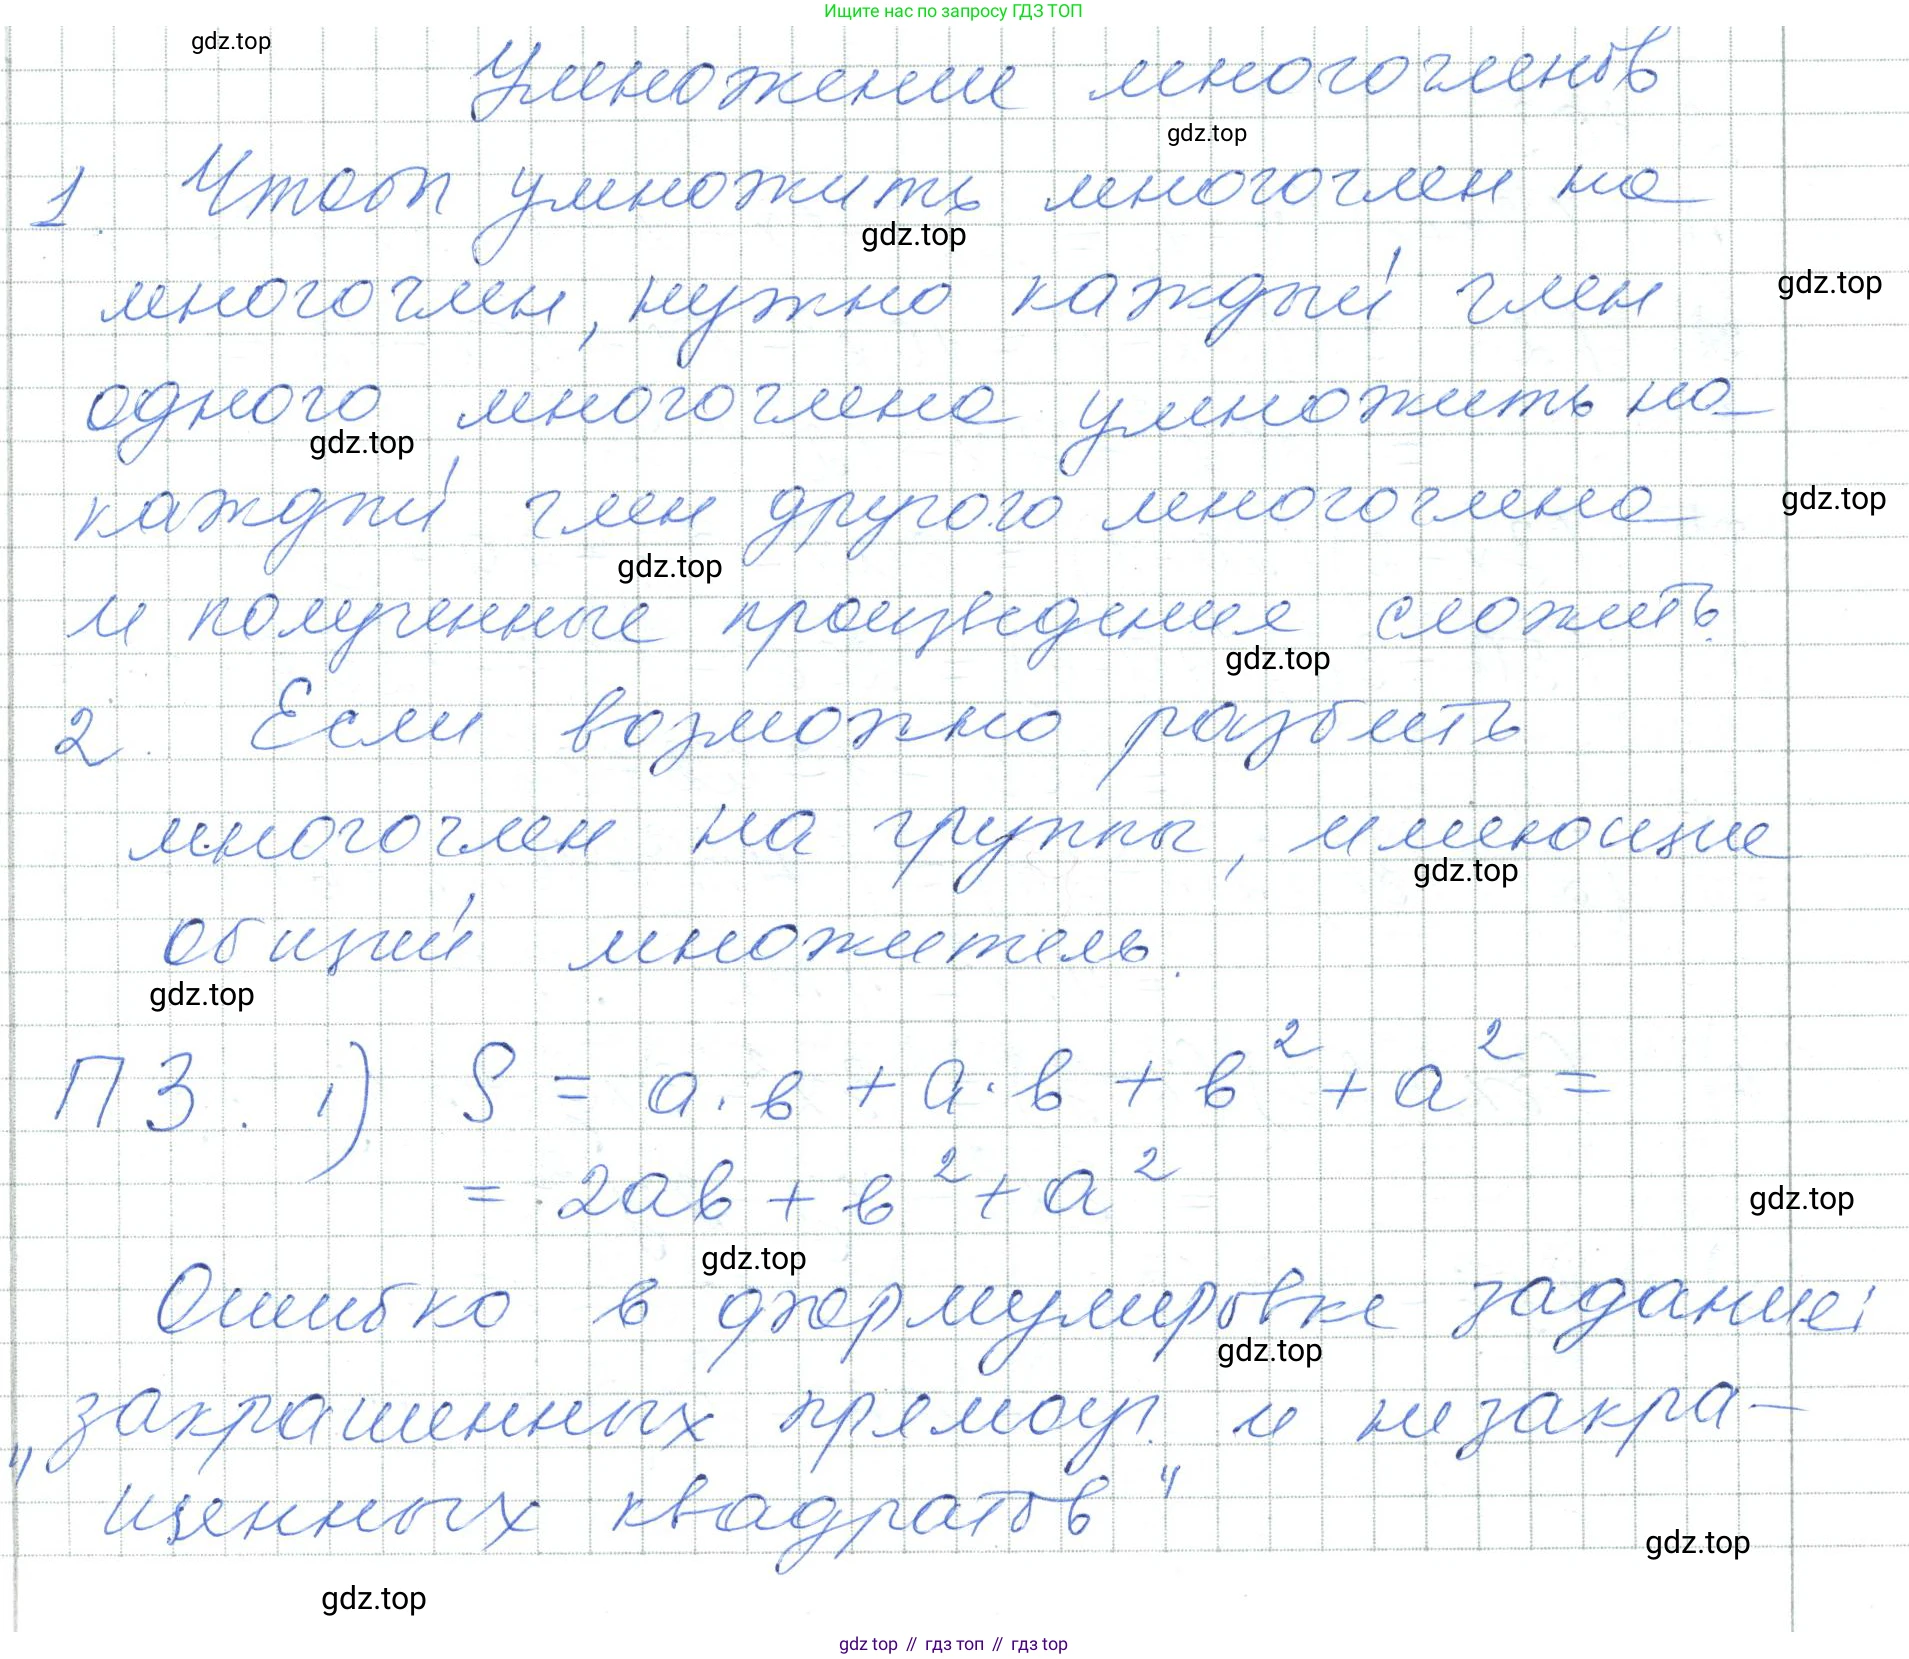 Ищите нас по запросу ГДЗ ТОП
gdz.top
Умножение многочленов
gdz.top
1. Чтобы умножить многочлен на
gdz.top
многочлен, нужно каждый член
gdz.top
одного многочлена умножить на
gdz.top
каждый член другого многочлена
gdz.top
gdz.top
и полученные произведения сложить.
gdz.top
2. Если возможно разбить
многочлен на группы, имеющие
gdz.top
общий множитель.
gdz.top
ПЗ. 1) S = a·b + a·b + b² + a² =
= 2ab + b² + a²
gdz.top
gdz.top
Ошибка в формулировке задания:
gdz.top
„закрашенных прямоуг. и незакра-
щенных квадратов“
gdz.top
gdz.top
gdz top // гдз топ // гдз top